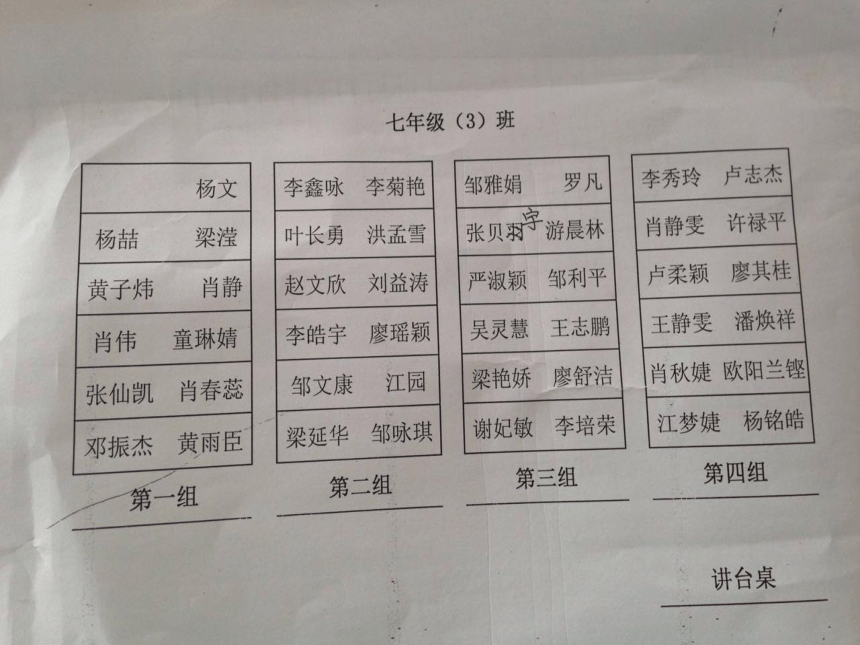 七年级（3）班
杨文
杨喆 梁滢
黄子炜 肖静
肖伟 童琳婧
张仙凯 肖春蕊
邓振杰 黄雨臣
第一组
李鑫咏 李菊艳
叶长勇 洪孟雪
赵文欣 刘益涛
李皓宇 廖瑶颖
邹文康 江园
梁延华 邹咏琪
第二组
邹雅娟 罗凡
张贝羽字 游晨林
严淑颖 邹利平
吴灵慧 王志鹏
梁艳娇 廖舒洁
谢妃敏 李培荣
第三组
李秀玲 卢志杰
肖静雯 许禄平
卢柔颖 廖其桂
王静雯 潘焕祥
肖秋婕 欧阳兰铿
江梦婕 杨铭皓
第四组
讲台桌